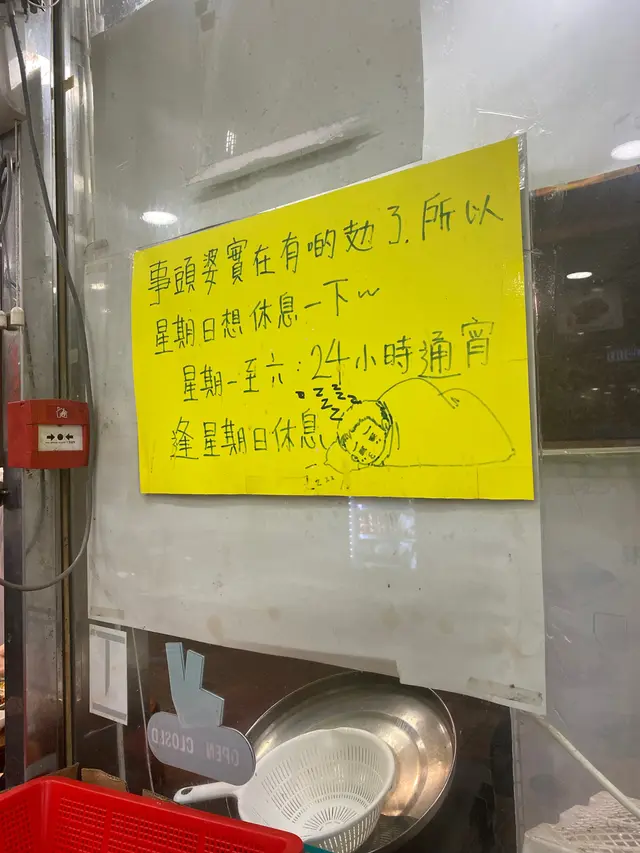 事頭婆實在有啲攰了.所以
星期日想休息一下~
星期一至六:24小時通宵
逢星期日休息
z z z z z
OPEN CLOSED